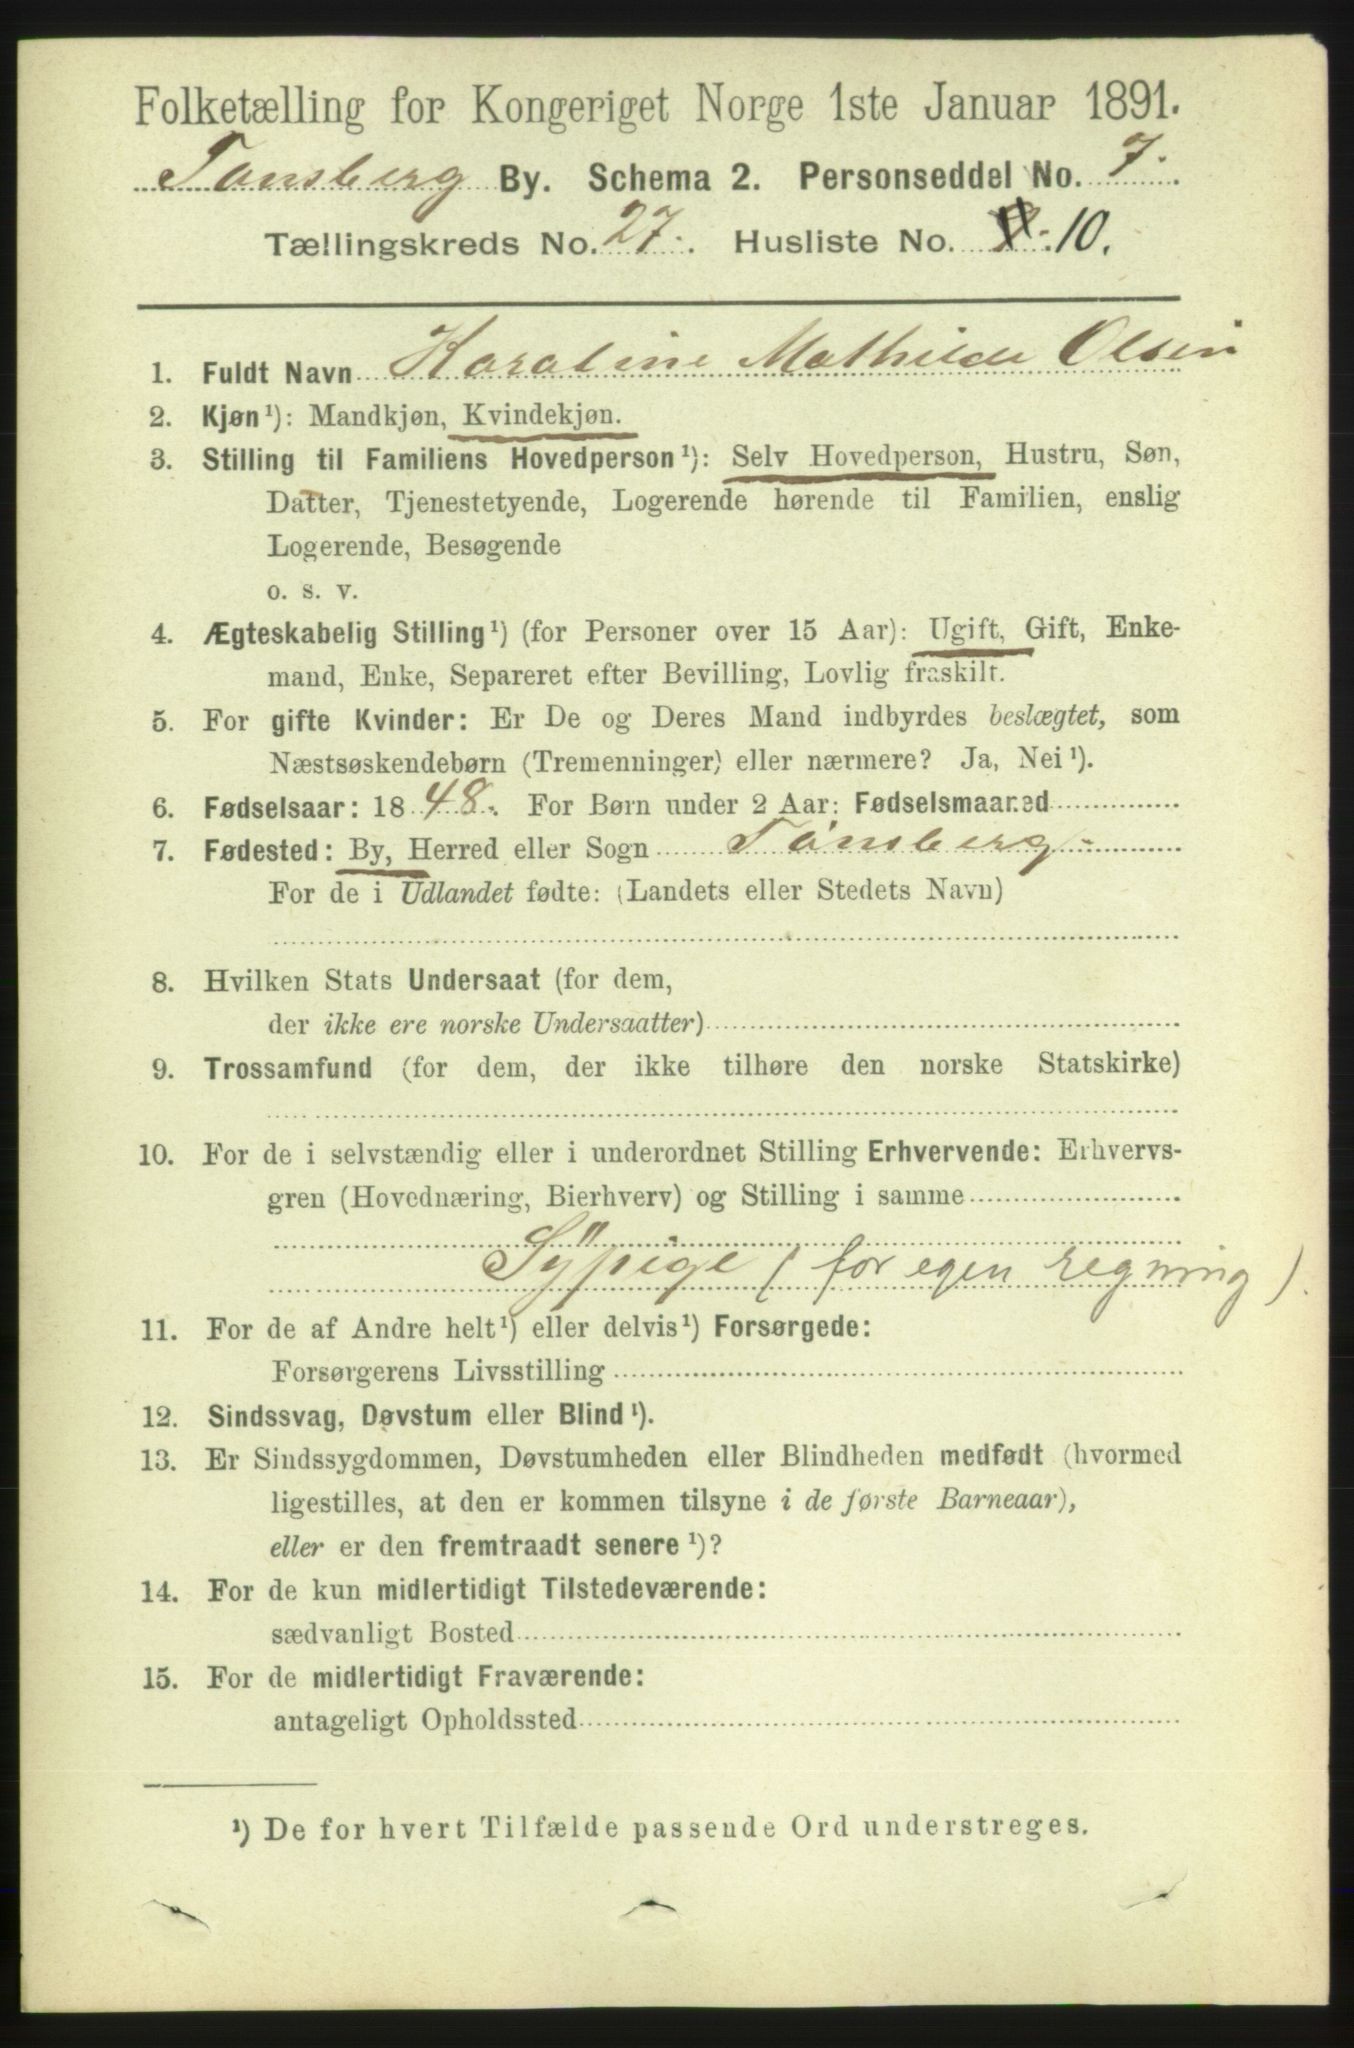 Folketælling for Kongeriget Norge 1ste Januar 1891.
Tønsberg By. Schema 2. Personseddel No. 7.
Tællingskreds No. 27. Husliste No. 10.
1. Fuldt Navn Karoline Mathilde Olsen
2. Kjøn ¹): Mandkjøn, Kvindekjøn.
3. Stilling til Familiens Hovedperson ¹): Selv Hovedperson, Hustru, Søn,
Datter, Tjenestetyende, Logerende hørende til Familien, enslig
Logerende, Besøgende
o. s. v.
4. Ægteskabelig Stilling ¹) (for Personer over 15 Aar): Ugift, Gift, Enke-
mand, Enke, Separeret efter Bevilling, Lovlig fraskilt.
5. For gifte Kvinder: Er De og Deres Mand indbyrdes beslægtet, som
Næstsøskendebørn (Tremenninger) eller nærmere? Ja, Nei ¹).
6. Fødselsaar: 1848. For Børn under 2 Aar: Fødselsmaaned
7. Fødested: By, Herred eller Sogn Tønsberg
For de i Udlandet fødte: (Landets eller Stedets Navn)
8. Hvilken Stats Undersaat (for dem,
der ikke ere norske Undersaatter)
9. Trossamfund (for dem, der ikke tilhøre den norske Statskirke)
10. For de i selvstændig eller i underordnet Stilling Erhvervende: Erhvervs-
gren (Hovednæring, Bierhverv) og Stilling i samme
Sÿpige (for egen regning).
11. For de af Andre helt ¹) eller delvis ¹) Forsørgede:
Forsørgerens Livsstilling
12. Sindssvag, Døvstum eller Blind ¹).
13. Er Sindssygdommen, Døvstumheden eller Blindheden medfødt (hvormed
ligestilles, at den er kommen tilsyne i de første Barneaar),
eller er den fremtraadt senere ¹)?
14. For de kun midlertidigt Tilstedeværende:
sædvanligt Bosted
15. For de midlertidigt Fraværende:
antageligt Opholdssted
¹) De for hvert Tilfælde passende Ord understreges.